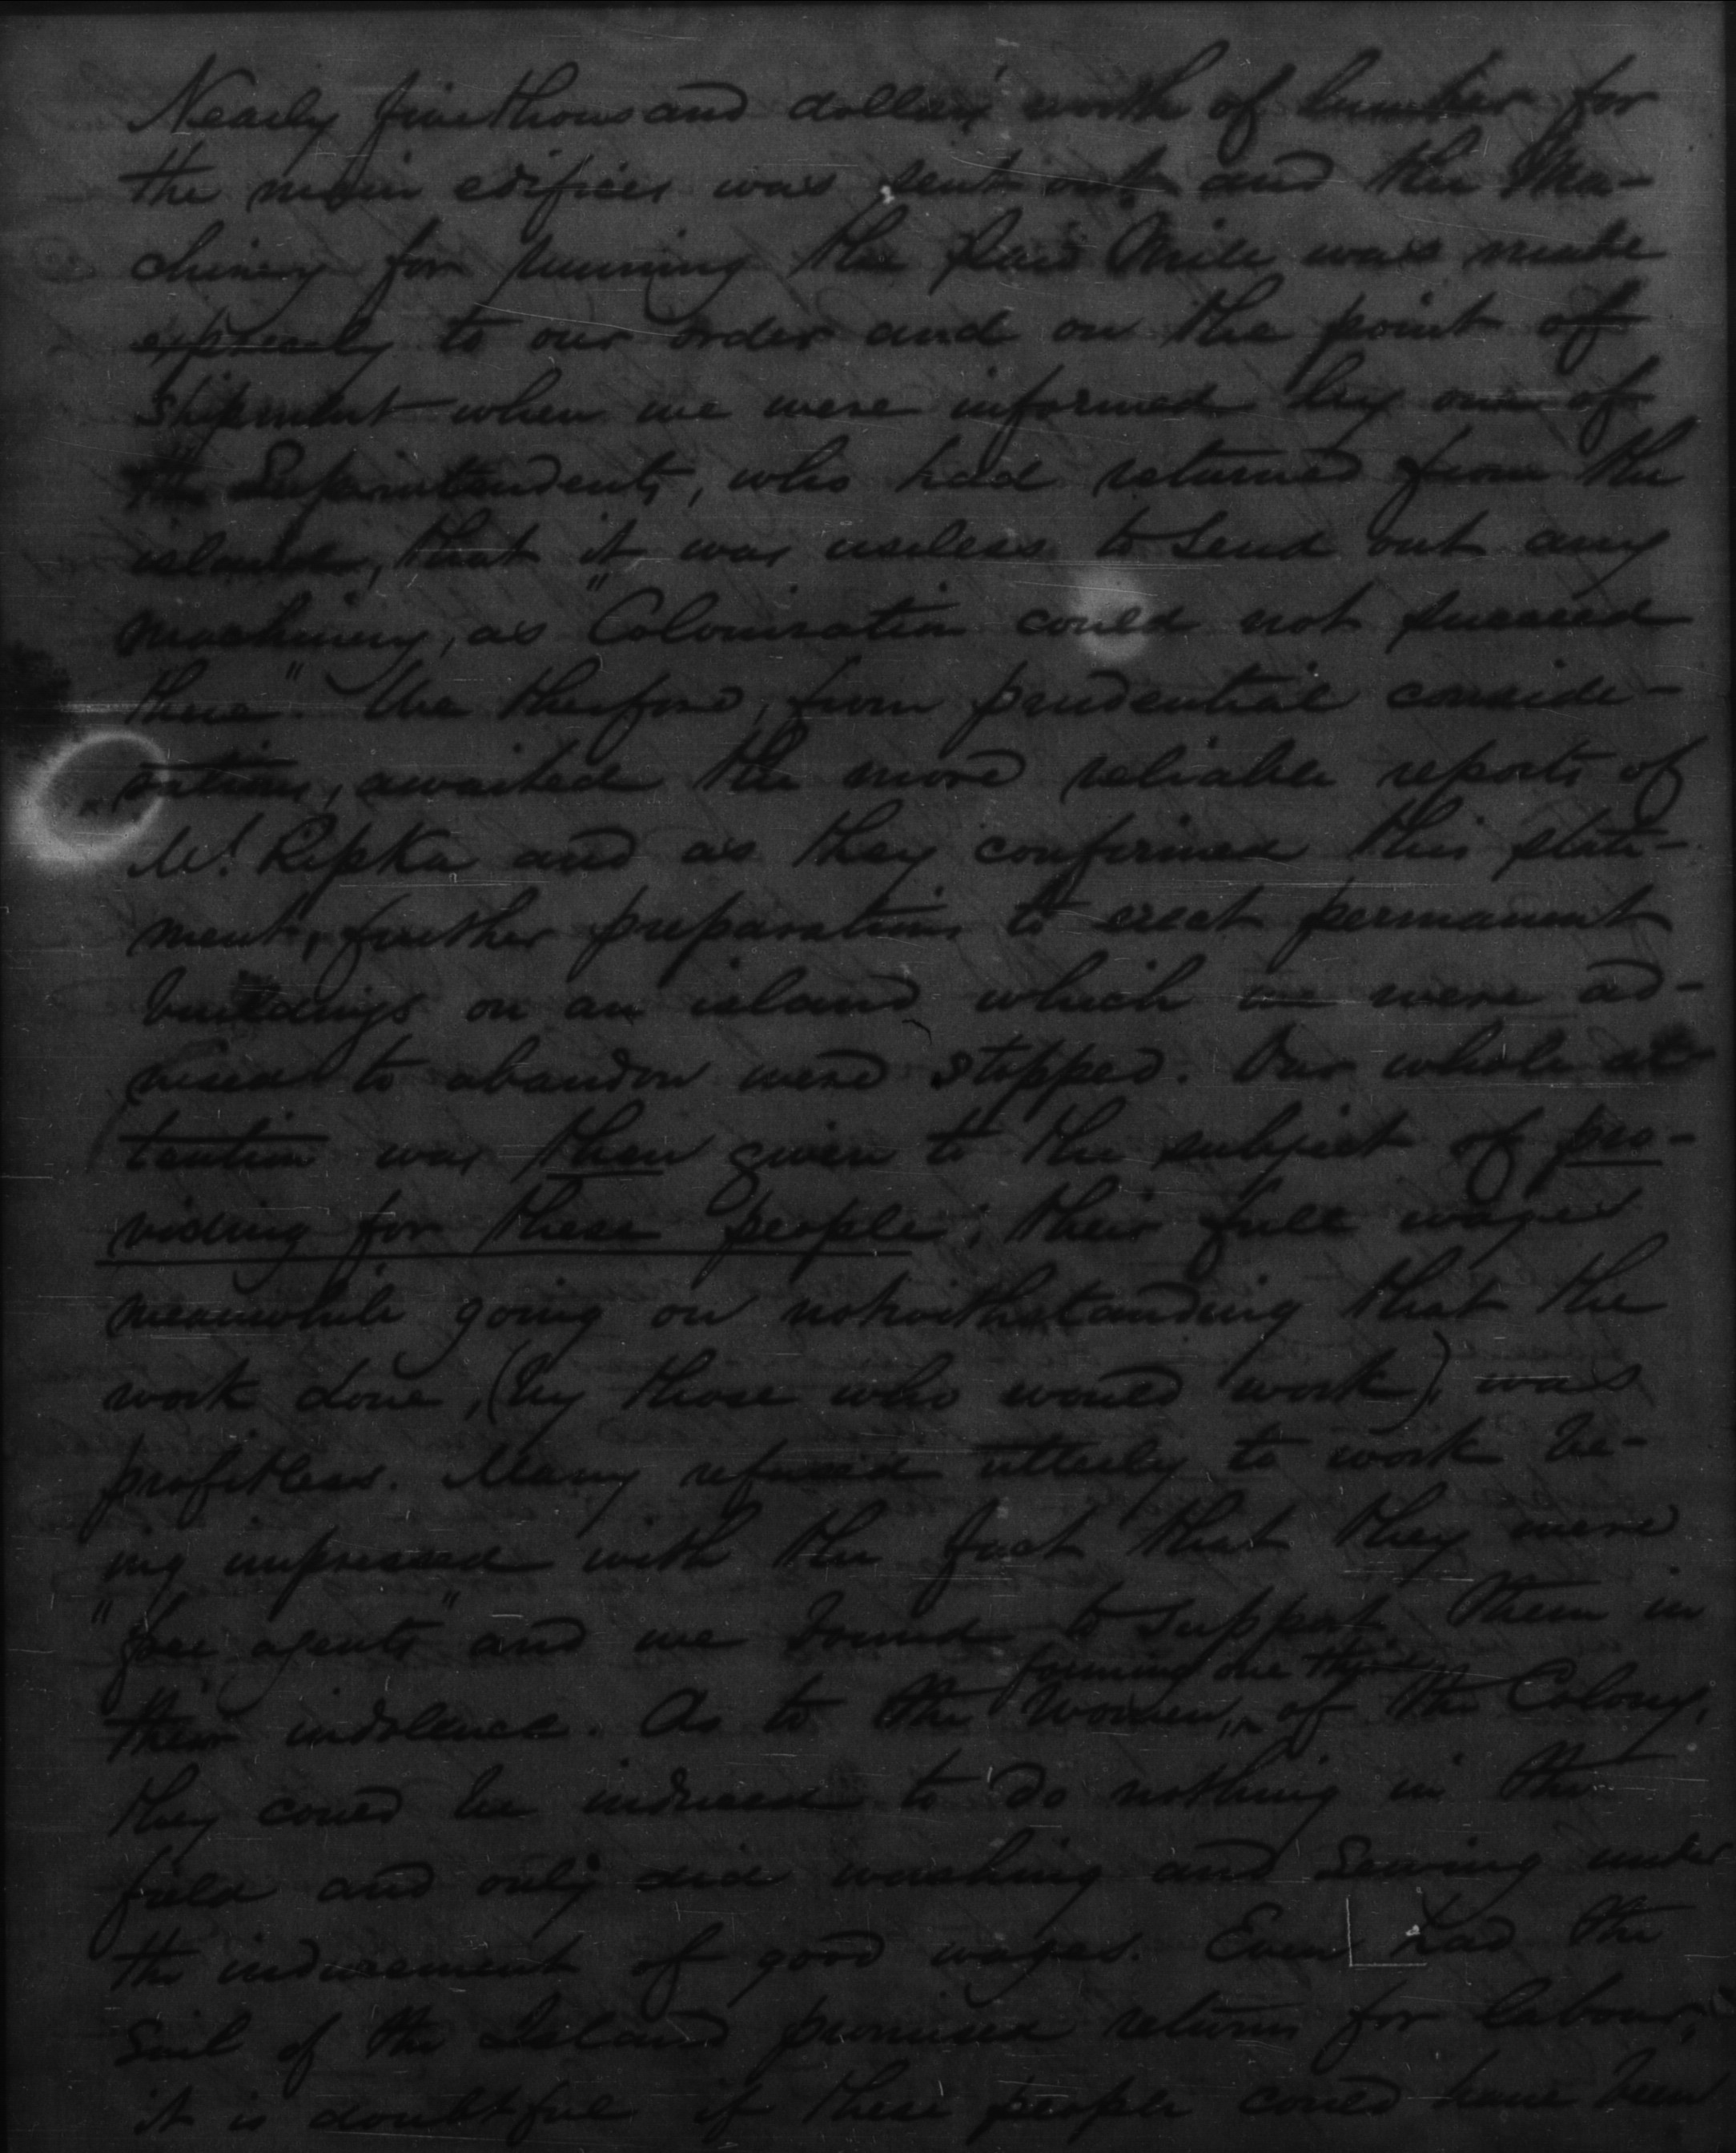 Nearly five thousand dollars worth of lumber for
the main edifices was sent out and the Ma-
chinery for running the Saw Mill was made
expressly to our order and on the point of
shipment when we were informed by one of
the Superintendents, who had returned from the
islands, that it was useless to send out any
machinery, as "Colonization could not succeed
there". We therefore, from prudential conside-
rations, awaited the more reliable reports of
Mr. Ripka and as they confirmed this state-
ment, further preparations to erect permanent
buildings on an island which we were ad-
vised to abandon were stopped. Our whole at-
tention was then given to the subject of pro-
viding for these people; their full wages
meanwhile going on notwithstanding that the
work done, (by those who would work), was
profitless. Many refused utterly to work be-
ing impressed with the fact that they were
"free agents" and we bound to support them in
their indolence. As to the Women, forming one third of the Colony,
they could be induced to do nothing in the
field and only did washing and sewing under
the inducement of good wages. Even had the
Soil of the Island promised returns for labour,
it is doubtful if these people could have been